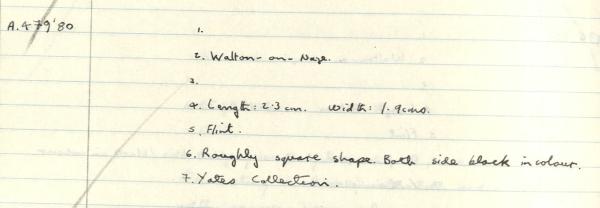 A.479'80
1.
2. Walton-on-Naze.
3.
4. Length: 2.3 cm. Width: 1.9cms.
5. Flint.
6. Roughly square shape. Both side black in colour.
7. Yates Collection.